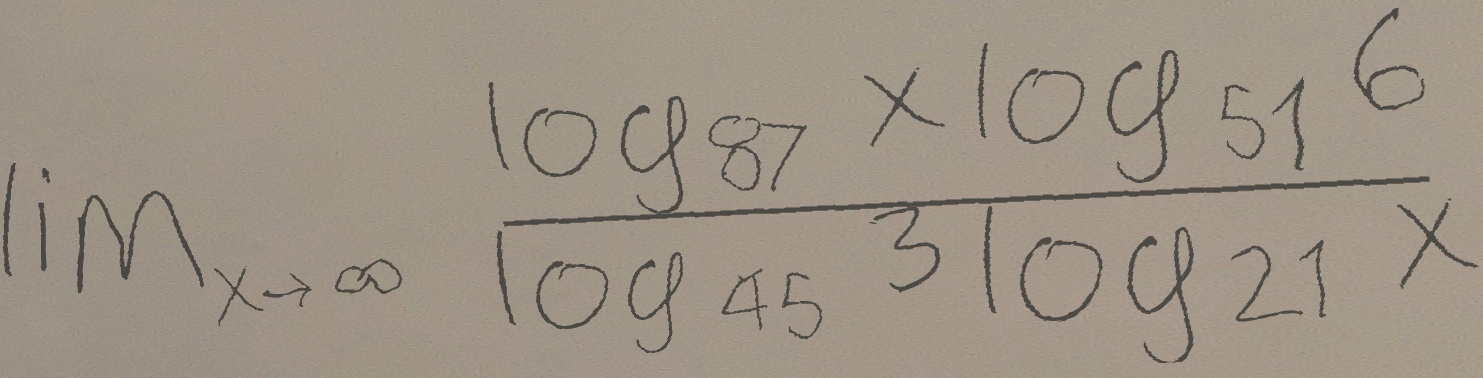 lim x→∞ log 87 x log 51 6
log 45 3 log 21 x